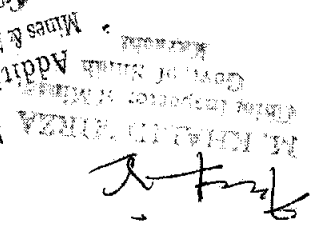 M. KHALID MIRZA
Chief Inspector of Mines
Govt. of Sindh
Karachi
Additi
Mines &